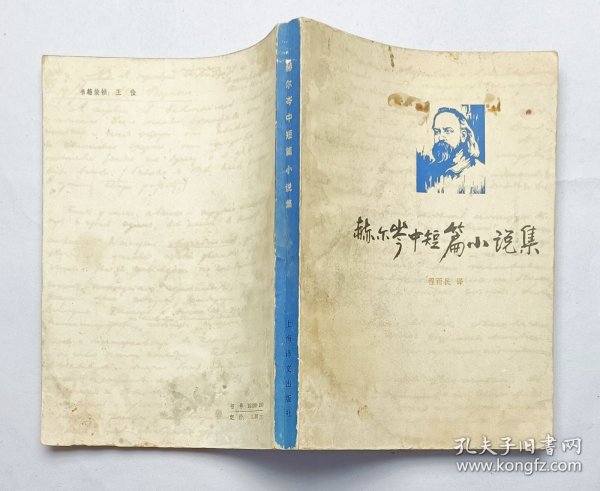 书籍装帧：王俭
赫尔岑中短篇小说集
上海译文出版社
赫尔岑中短篇小说集
程雨民 译
孔夫子旧书网
www.kongfz.com